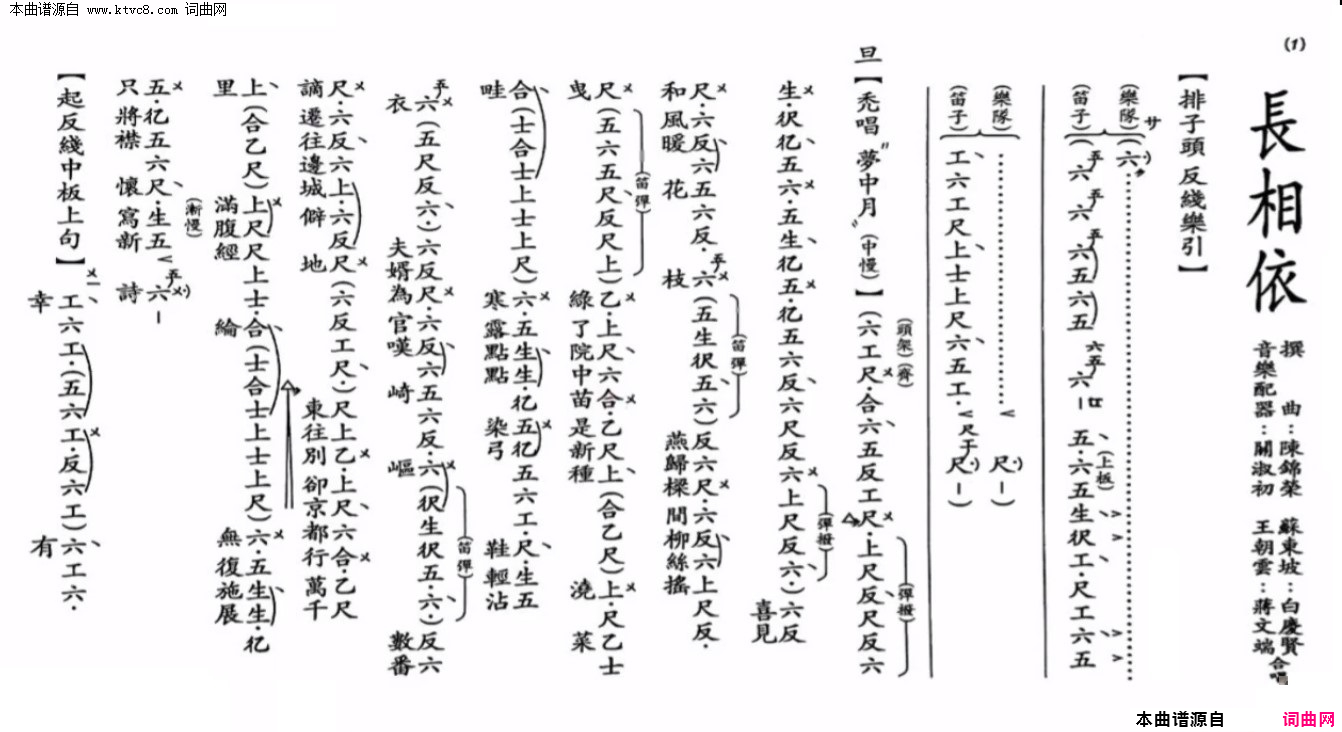 本曲谱源自 www.ktvc8.com 词曲网
(1)
長相依
撰曲：陳錦榮 蘇東坡：白慶賢
音樂配器：關淑初 王朝雲：蔣文端 合唱
【排子頭 反綫樂引】
(樂隊) サ (六·)
(笛子) (六 六 六五六五 六 五·六五生伬工·尺工六五
(上板)
(樂隊) 尺·)—)
(笛子) 工六工尺上士上尺六五工· 尺于 尺·)—)
(頭架)(齊) (彈撥)
旦【禿唱“夢中月”(中慢)】(六工尺·合六·五反工尺·上尺反尺反六
生·伬仜五六·五生仜五·仜五六反·六尺反六上尺反六·)六反
(彈撥)
喜見
尺·六反六五六反·六(五生伬五·六)反六尺·六反六上尺反·
(笛彈)
和風暖 花 枝 燕歸樑間柳絲搖
尺(五六五尺反尺上)乙·上尺六合·乙尺上(合乙尺)上·尺乙士
(笛彈)
曳 綠了院中苗是新種 澆菜
合(士合士上士上尺)六·五生生·仜五仜五六工·尺·生五
畦 寒露點點 染弓 鞋輕沾
六(五尺反六·)六反尺·六反六五六反·六(伬生伬五·六·)反六
(笛彈)
衣 夫婿為官嘆 崎 嶇 數番
尺·六反六上·六反尺(六反工尺·)尺上乙·上尺六合·乙尺
謫遷往邊城僻 地 東往別卻京都行萬千
上(合乙尺)上尺尺上士·合(士合士上士上尺)六·五生生·仜
里 滿腹經 綸 無復施展
(漸慢)
五·仜五六尺·生五 六·)—
只將襟 懷寫新 詩
【起反綫中板上句】工六工·(五六工·反六工)六工六·
幸 有
本曲谱源自 词曲网